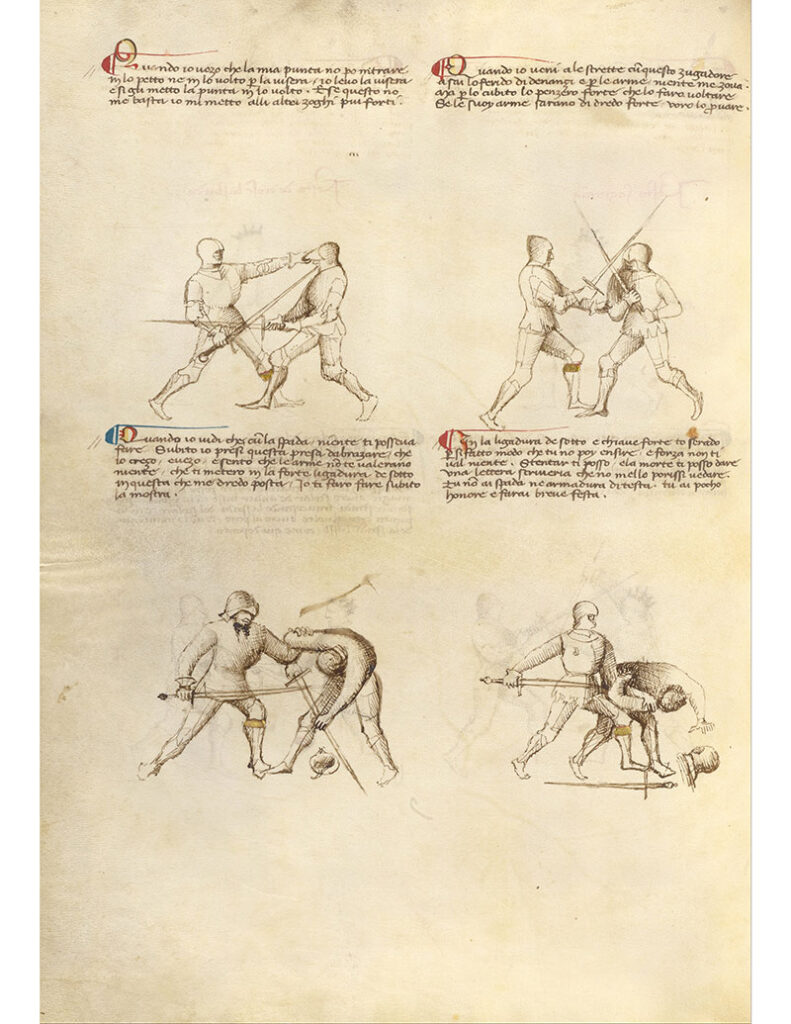 Quando io vezo che la mia punta no po intrare
in lo petto ne in lo volto p la visera, io levo la visera
e si gli metto la punta in lo volto. E se questo no
me basta io mi metto alli altri zoghi piu forti.
Quando io veni a le strette cu questo zugadore
a lo ferido di denançi e p le arme niente me zova
p lo cubito lo penzero forte che lo faro voltare
Se le suoy arme sarano di dredo forte, voro lo pvare.
Quando io vidi che cu la spada, niente ti posseva
fare. Subito io presi questa presa dabrazare, che
io crezo, e vezo, e sento che le arme no te valerano
niente, che ti metero in la forte ligadura de sotto
in questa che me dredo posta, Io ti faro fare subito
la mostra.
In la ligadura de sotto e chiave forte to serado
p si fatto modo che tu no poy ensire, e forza non ti
val niente. Stentar ti posso, e la morte ti posso dare
Una lettera scriveria che no me llo porissi vedare.
Tu no ai spada ne armadura di testa, tu ai pocho
honore e farai breve festa.